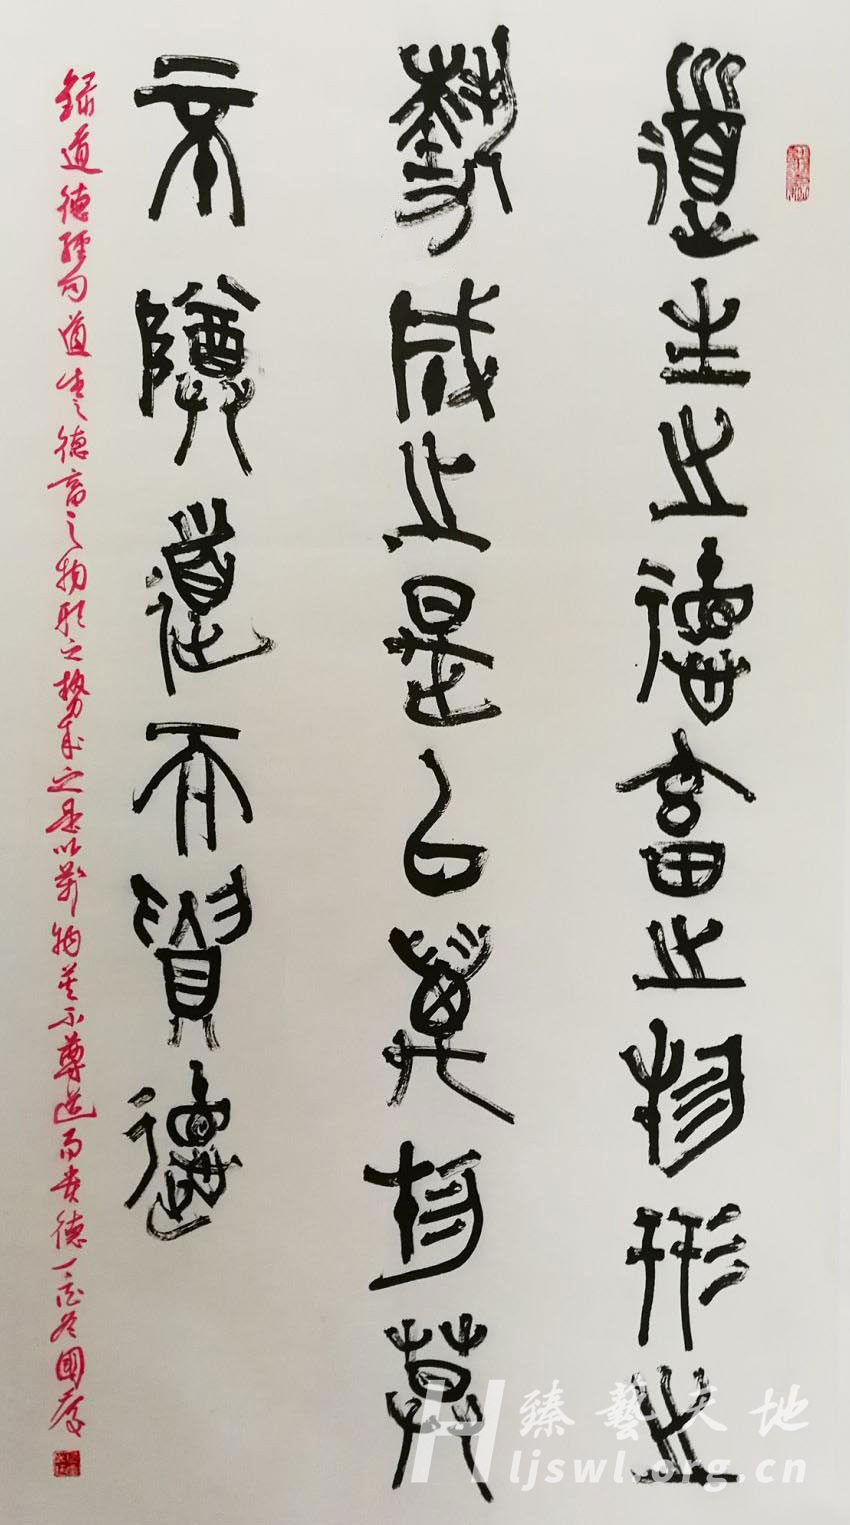 道生之德畜之物形之
势成之是以万物莫
不尊道而贵德
録道德经句道生之德畜之物形之势成之是以萬物莫不尊道而贵德
國彦
臻藝天地
ljswl.org.cn